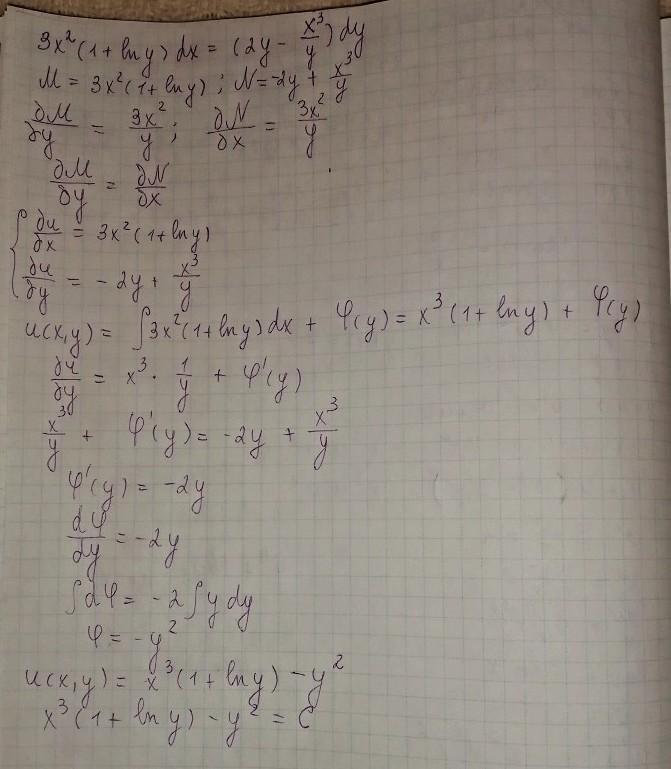 3x²(1+ln y) dx = (2y - x³/y) dy
M = 3x²(1+ln y) ; N = -2y + x³/y
∂M/∂y = 3x²/y ; ∂N/∂x = 3x²/y
∂M/∂y = ∂N/∂x
{ ∂u/∂x = 3x²(1+ln y)
∂u/∂y = -2y + x³/y
u(x,y) = ∫3x²(1+ln y) dx + φ(y) = x³(1+ln y) + φ(y)
∂u/∂y = x³ · 1/y + φ'(y)
x³/y + φ'(y) = -2y + x³/y
φ'(y) = -2y
dφ/dy = -2y
∫dφ = -2∫y dy
φ = -y²
u(x,y) = x³(1+ln y) - y²
x³(1+ln y) - y² = C